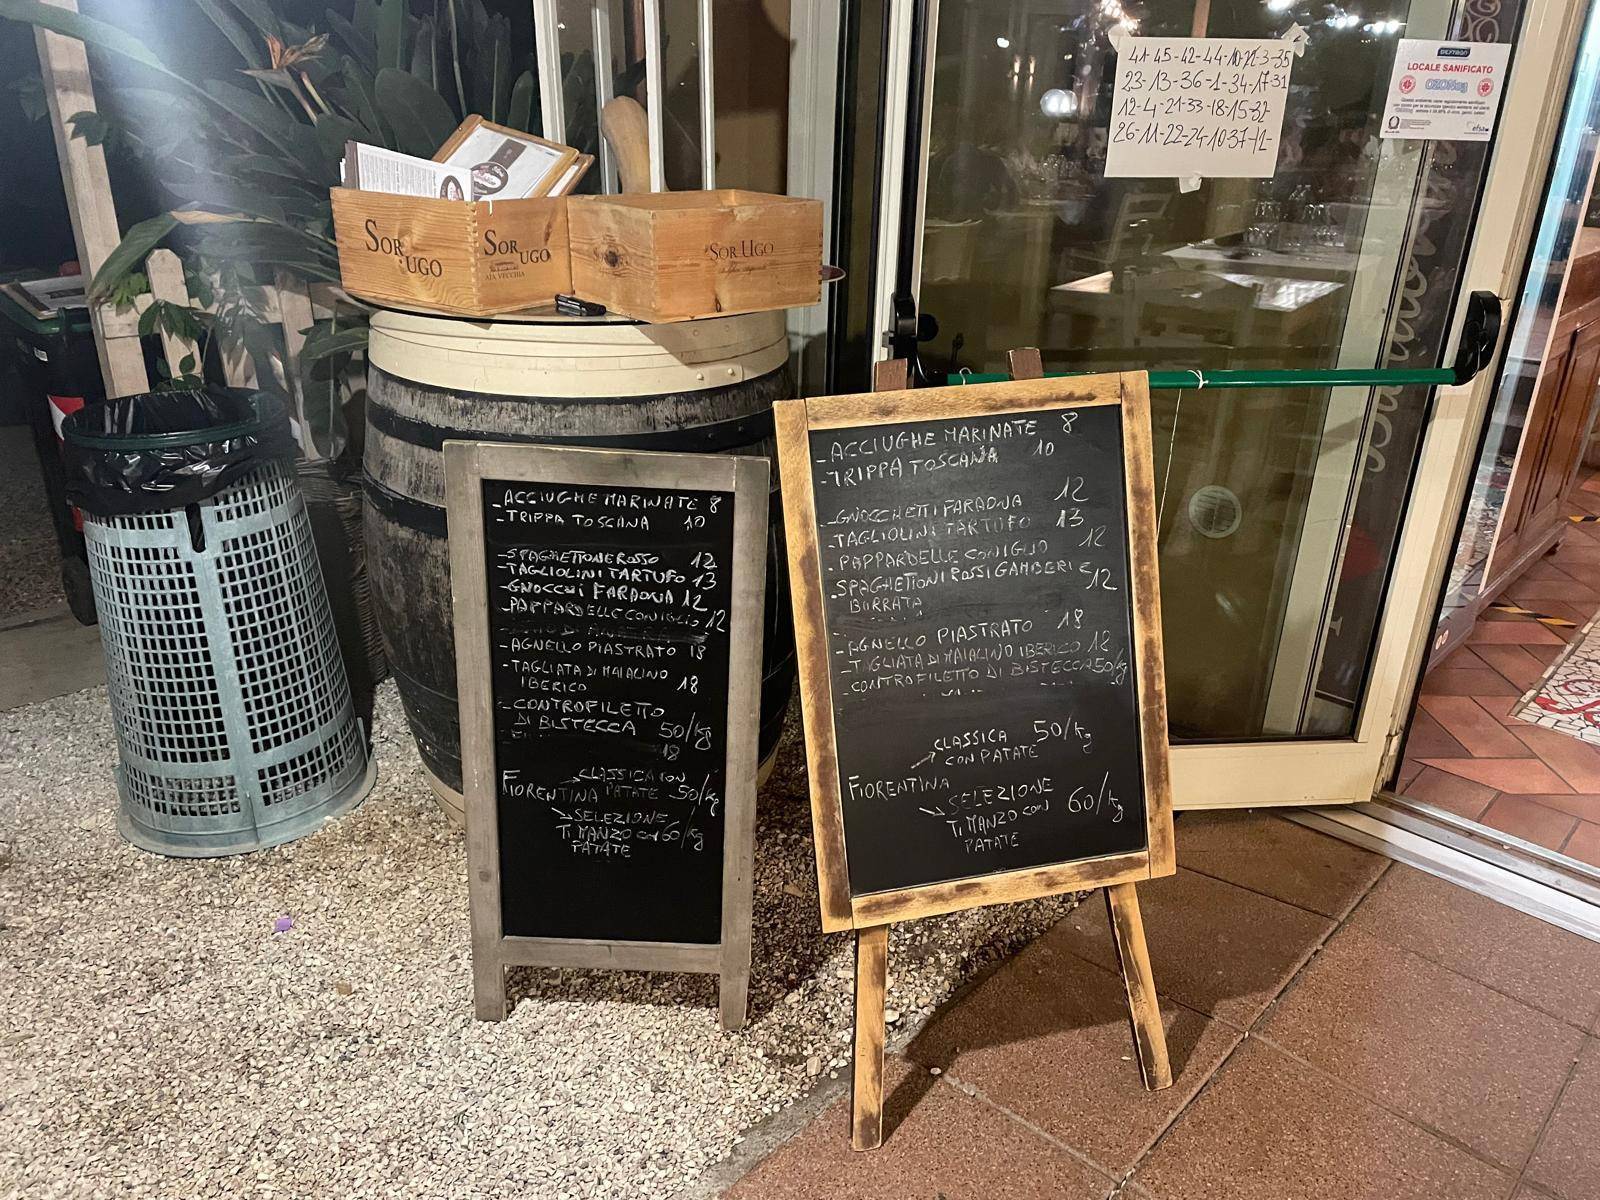 41-45-42-44-10-21-3-35
23-13-36-1-34-17-31
12-4-21-33-18-15-32-
26-11-22-24-10-37-12-
LOCALE SANIFICATO
efsa
SOR
UGO
SOR
UGO
AIA VECCHIA
SOR UGO
-ACCIUGHE MARINATE 8
-TRIPPA TOSCANA 10
-SPAGHETTONE ROSSO 12
-TAGLIOLINI TARTUFO 13
-GNOCCHI FARAONA 12
-PAPPARDELLE CONIGLIO 12
-AGNELLO PIASTRATO 18
-TAGLIATA DI MAIALINO
IBERICO 18
-CONTROFILETTO
DI BISTECCA 50/kg
18
FIORENTINA
CLASSICA CON
PATATE 50/kg
SELEZIONE
TI MANZO CON 60/kg
PATATE
-ACCIUGHE MARINATE 8
-TRIPPA TOSCANA 10
-GNOCCHETTI FARAONA 12
-TAGLIOLINI TARTUFO 13
-PAPPARDELLE CONIGLIO 12
-SPAGHETTONI ROSSI GAMBERI E 12
BURRATA
-AGNELLO PIASTRATO 18
-TAGLIATA DI MAIALINO IBERICO 18
-CONTROFILETTO DI BISTECCA 50/kg
CLASSICA 50/kg
CON PATATE
FIORENTINA
SELEZIONE 60/kg
TI MANZO CON
PATATE